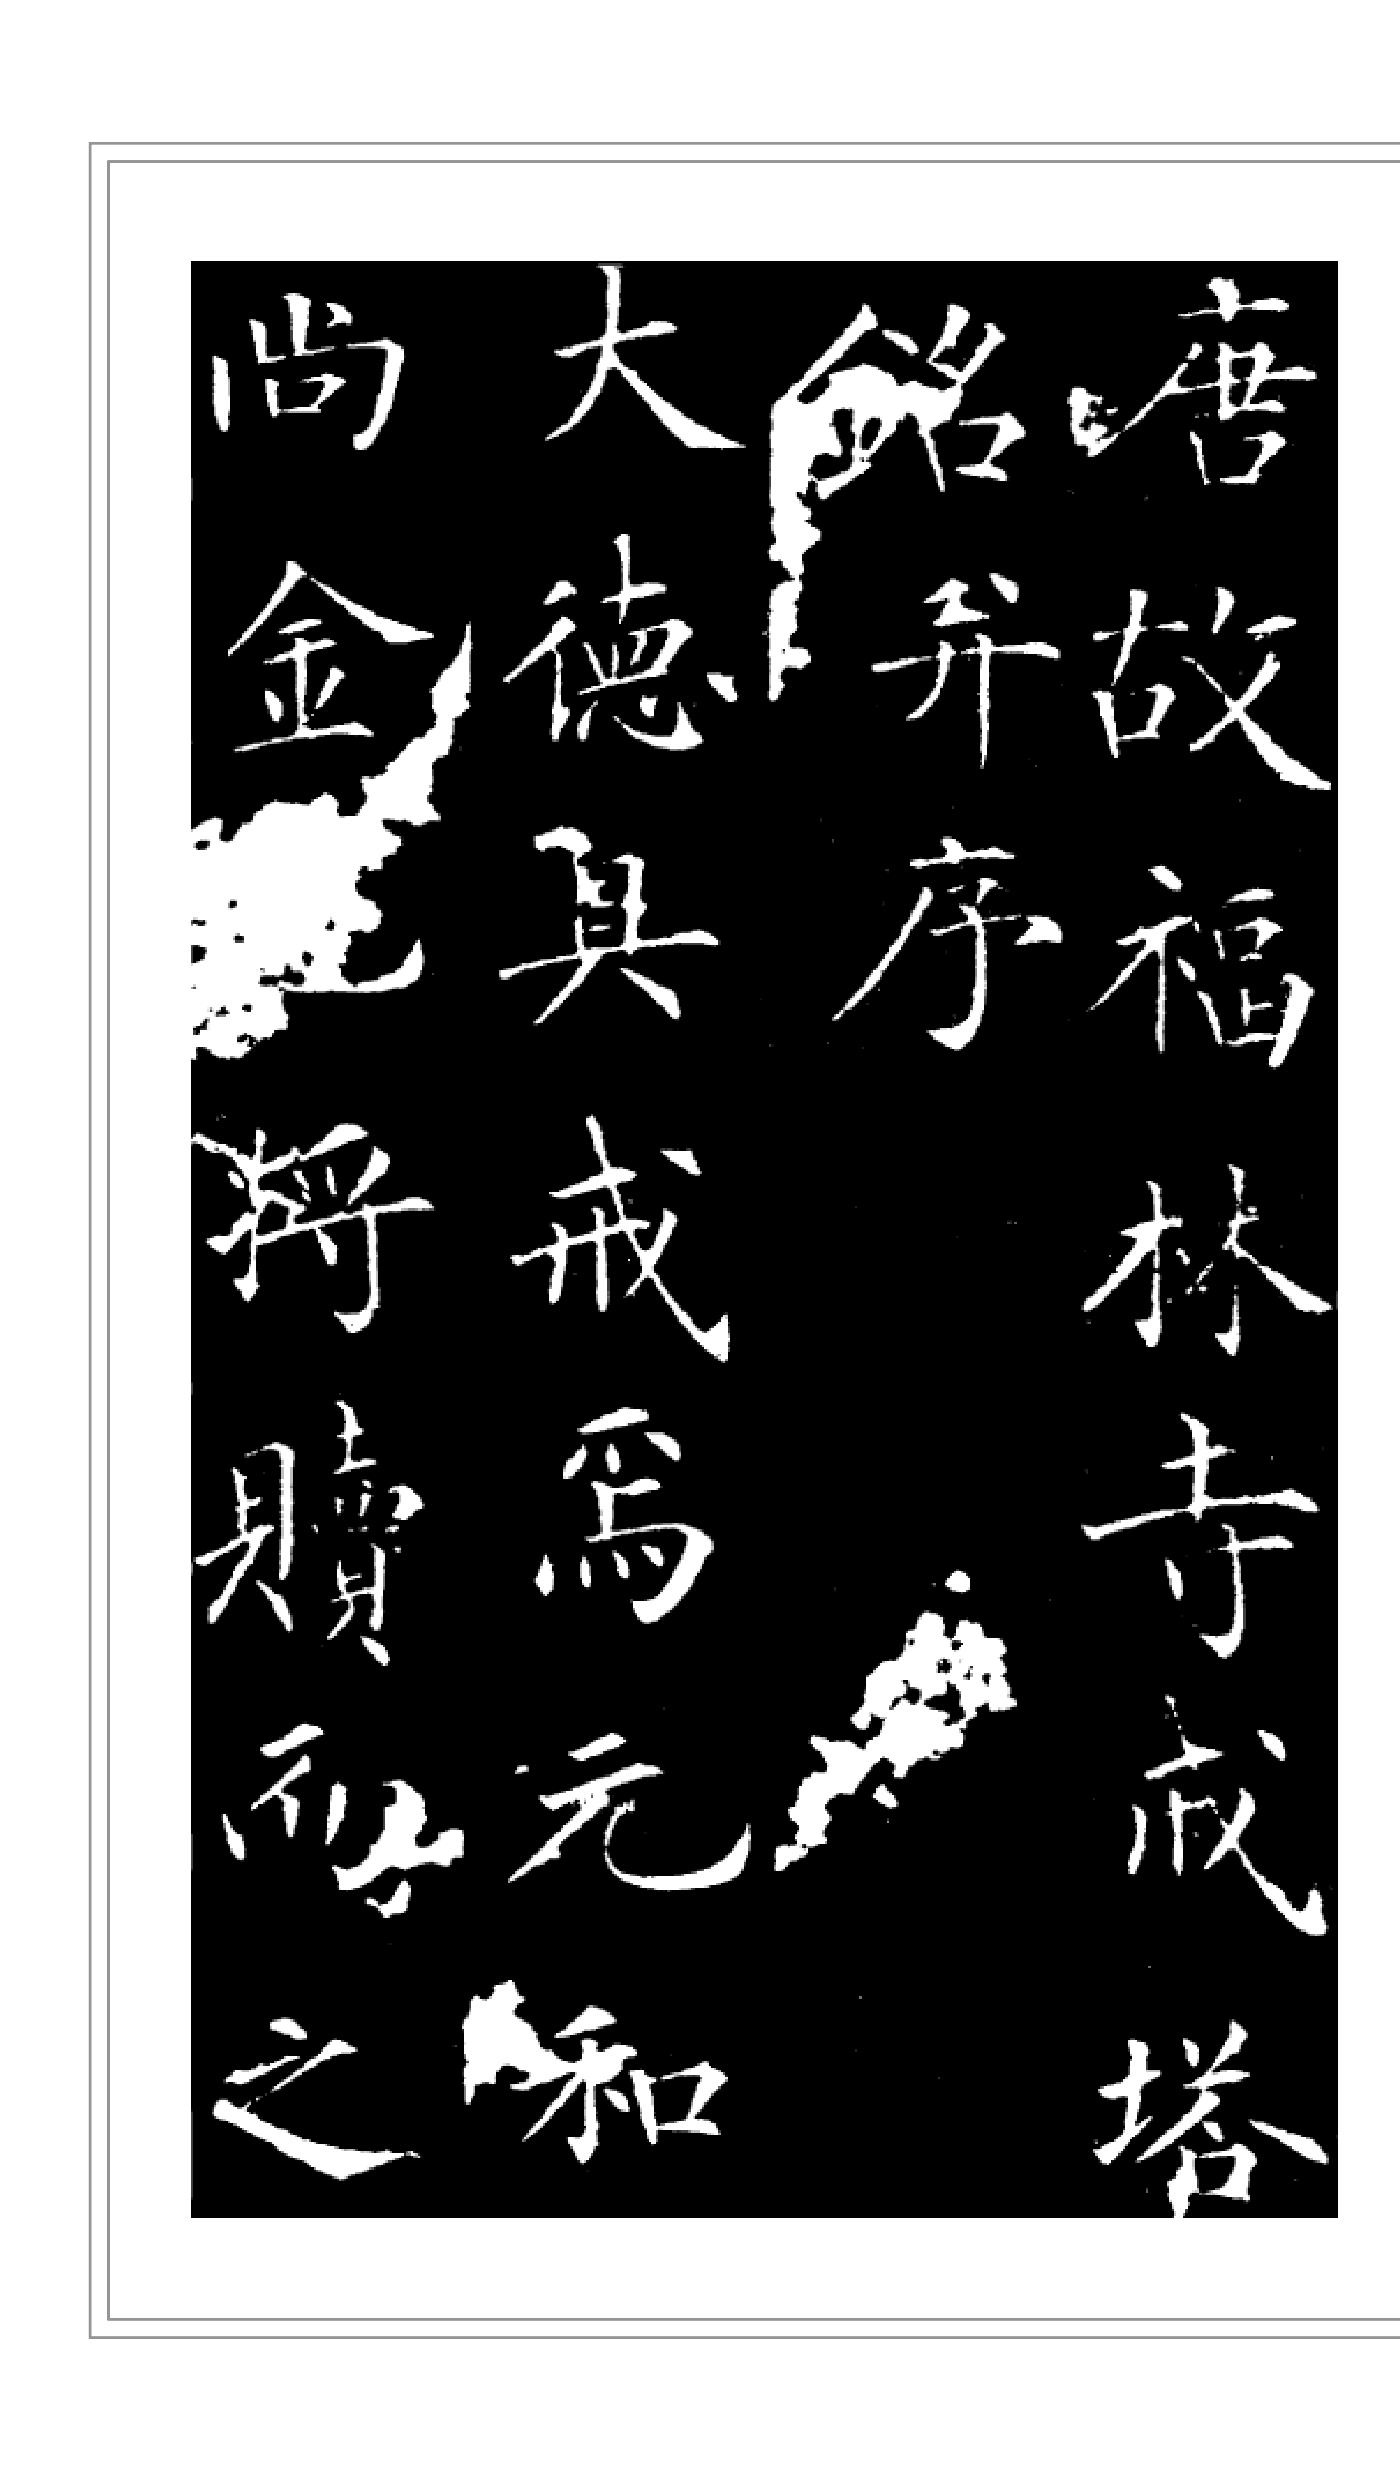 唐故福林寺戒塔
銘并序
大德具戒焉元和
尚金將贖而之